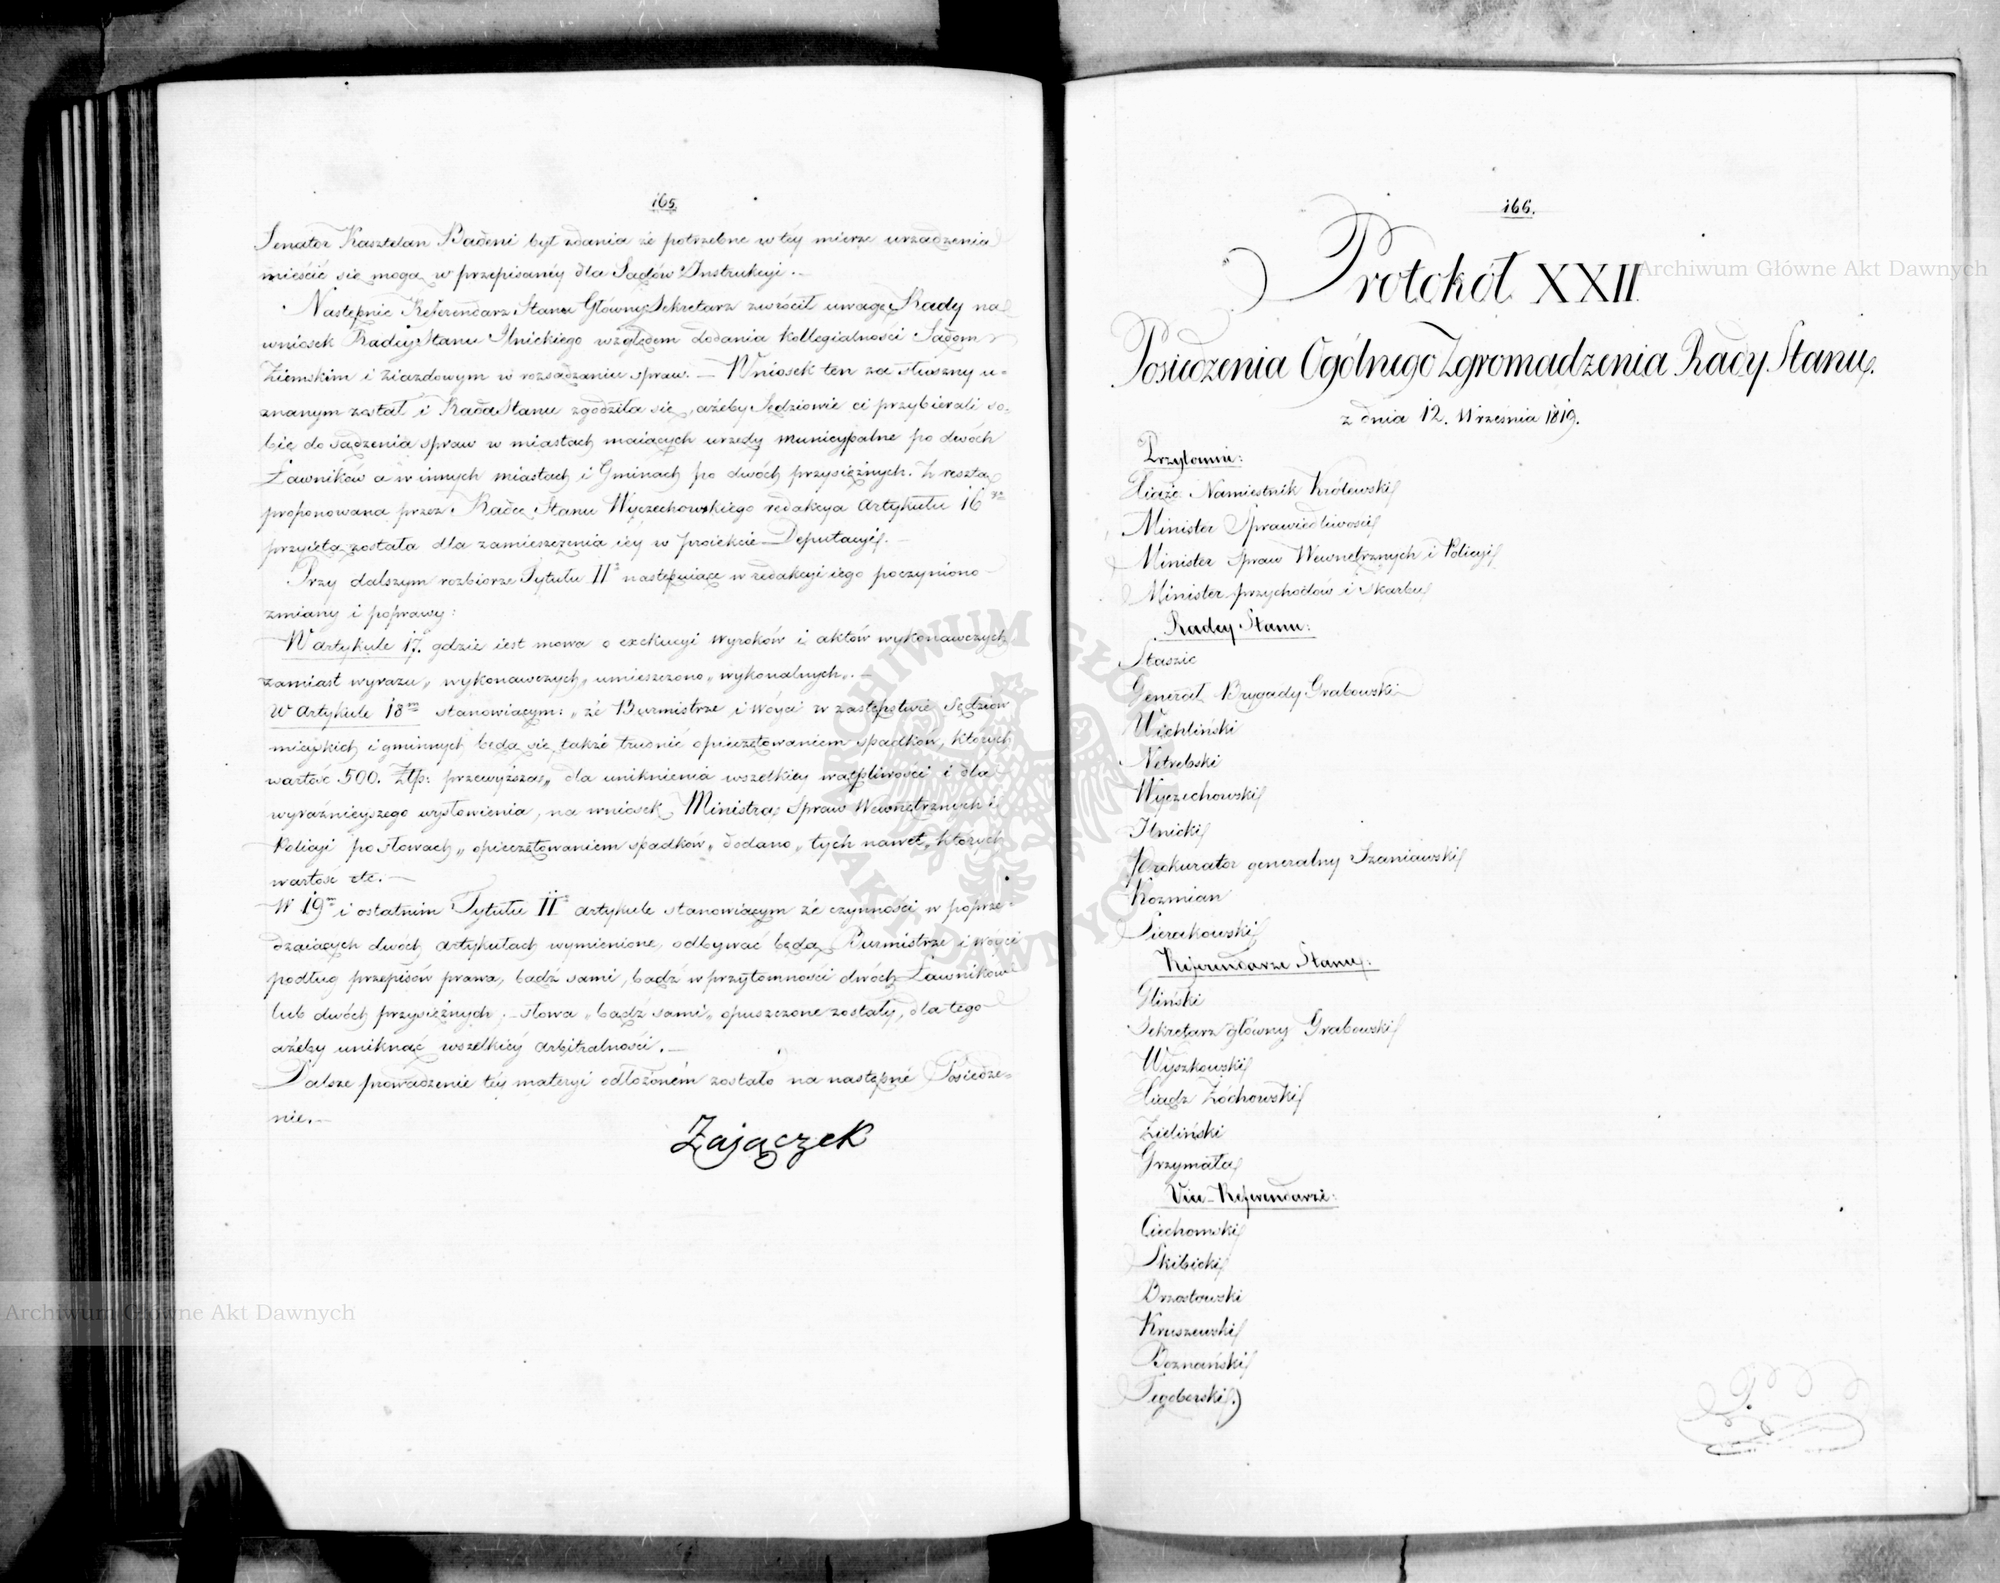 165.
Senator Kasztelan Badeni był zdania że potrzebne w téy mierze urządzenia
mieścić się mogą w przepisanéy dla Sądów Instrukcyi.—
Następnie Referendarz Stanu Główny Sekretarz zwrócił uwagę Rady na
wniosek Radcy Stanu Ilnickiego względem dodania kollegialności Sądom
Ziemskim i Ziazdowym w rozsądzaniu spraw.— Wniosek ten za słuszny u-
znanym został i Rada Stanu zgodziła się, ażeby Sędziowie ci przybierali so-
bie do sądzenia spraw w miastach maiących urzędy municypalne po dwóch
Ławników a w innych miastach i Gminach po dwóch przysiężnych. Z resztą
proponowana przez Radcę Stanu Wyczechowskiego redakcya Artykułu 16go
przyięta została dla zamieszczenia iéy w proiekcie Deputacyi.—
Przy dalszym rozbiorze Tytułu IIo następuiące w redakcyi iego poczyniono
zmiany i poprawy:
W artykule 17. gdzie iest mowa o exekucyi wyroków i aktów wykonawczych
zamiast wyrazu „wykonawczych„ umieszczono „wykonalnych„.—
W Artykule 18m stanowiącym: „że Burmistrze i Wóyci w zastępstwie Sędziów
mieyskich i gminnych będą się także trudnić opieczętowaniem spadków, których
wartość 500. Złp: przewyższa„ dla uniknienia wszelkiey wątpliwości i dla
wyraźnieyszego wysłowienia, na wniosek Ministra Spraw Wewnętrznych i
Policyi po słowach „opieczętowaniem spadków„ dodano „tych nawet, których
wartość etc.—
W 19m i ostatnim Tytułu IIo artykule stanowiącym że czynności w poprze-
dzaiących dwóch artykułach wymienione, odbywać będą Burmistrze i Wóyci
podług przepisów prawa, bądź sami, bądź w przytomności dwóch Ławników
lub dwóch przysiężnych.— słowa „bądź sami„ opuszczone zostały, dla tego
ażeby uniknąć wszelkiéy arbitralności.—
Dalsze prowadzenie téy materyi odłożoném zostało na następne Posiedze-
nie.—
Zajączek
166.
Protokół XXII.
Posiedzenia Ogólnego Zgromadzenia Rady Stanu.
z dnia 12. Września 1819.
Przytomni:
Xiąże Namiestnik Królewski
Minister Sprawiedliwości
Minister Spraw Wewnętrznych i Policyi
Minister przychodów i Skarbu
Radcy Stanu:
Staszic
Generał Brygady Grabowski
Wichliński
Netrebski
Wyczechowski
Ilnicki
Prokurator generalny Szaniawski
Kozmian
Sierakowski
Referendarze Stanu:
Gliński
Sekretarz główny Grabowski
Wyszkowski
Xiądz Żóchowski
Zieliński
Grzymała
Vice-Referendarzi:
Ciechomski
Skibicki
Brzostowski
Kruszewski
Poznański
Tęgoborski.
Archiwum Główne Akt Dawnych
Archiwum Główne Akt Dawnych
ARCHIWUM GŁÓWNE AKT DAWNYCH